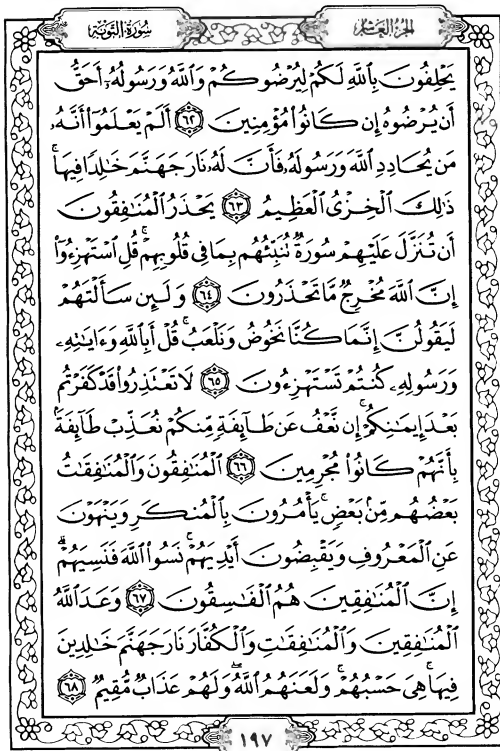 سُورَةُ التَّوْبَةِ
الجُزْءُ العَاشِر
يَحْلِفُونَ بِٱللَّهِ لَكُمْ لِيُرْضُوكُمْ وَٱللَّهُ وَرَسُولُهُۥٓ أَحَقُّ
أَن يُرْضُوهُ إِن كَانُوا۟ مُؤْمِنِينَ ٦٢ أَلَمْ يَعْلَمُوٓا۟ أَنَّهُۥ
مَن يُحَادِدِ ٱللَّهَ وَرَسُولَهُۥ فَأَنَّ لَهُۥ نَارَ جَهَنَّمَ خَٰلِدًا فِيهَا ۚ
ذَٰلِكَ ٱلْخِزْىُ ٱلْعَظِيمُ ٦٣ يَحْذَرُ ٱلْمُنَٰفِقُونَ
أَن تُنَزَّلَ عَلَيْهِمْ سُورَةٌ تُنَبِّئُهُم بِمَا فِى قُلُوبِهِمْ ۚ قُلِ ٱسْتَهْزِءُوٓا۟
إِنَّ ٱللَّهَ مُخْرِجٌ مَّا تَحْذَرُونَ ٦٤ وَلَئِن سَأَلْتَهُمْ
لَيَقُولُنَّ إِنَّمَا كُنَّا نَخُوضُ وَنَلْعَبُ ۚ قُلْ أَبِٱللَّهِ وَءَايَٰتِهِۦ
وَرَسُولِهِۦ كُنتُمْ تَسْتَهْزِءُونَ ٦٥ لَا تَعْتَذِرُوا۟ قَدْ كَفَرْتُم
بَعْدَ إِيمَٰنِكُمْ ۚ إِن نَّعْفُ عَن طَآئِفَةٍ مِّنكُمْ نُعَذِّبْ طَآئِفَةًۢ
بِأَنَّهُمْ كَانُوا۟ مُجْرِمِينَ ٦٦ ٱلْمُنَٰفِقُونَ وَٱلْمُنَٰفِقَٰتُ
بَعْضُهُم مِّنۢ بَعْضٍ ۚ يَأْمُرُونَ بِٱلْمُنكَرِ وَيَنْهَوْنَ
عَنِ ٱلْمَعْرُوفِ وَيَقْبِضُونَ أَيْدِيَهُمْ ۚ نَسُوا۟ ٱللَّهَ فَنَسِيَهُمْ ۗ
إِنَّ ٱلْمُنَٰفِقِينَ هُمُ ٱلْفَٰسِقُونَ ٦٧ وَعَدَ ٱللَّهُ
ٱلْمُنَٰفِقِينَ وَٱلْمُنَٰفِقَٰتِ وَٱلْكُفَّارَ نَارَ جَهَنَّمَ خَٰلِدِينَ
فِيهَا ۚ هِىَ حَسْبُهُمْ ۚ وَلَعَنَهُمُ ٱللَّهُ ۖ وَلَهُمْ عَذَابٌ مُّقِيمٌ ٦٨
١٩٧